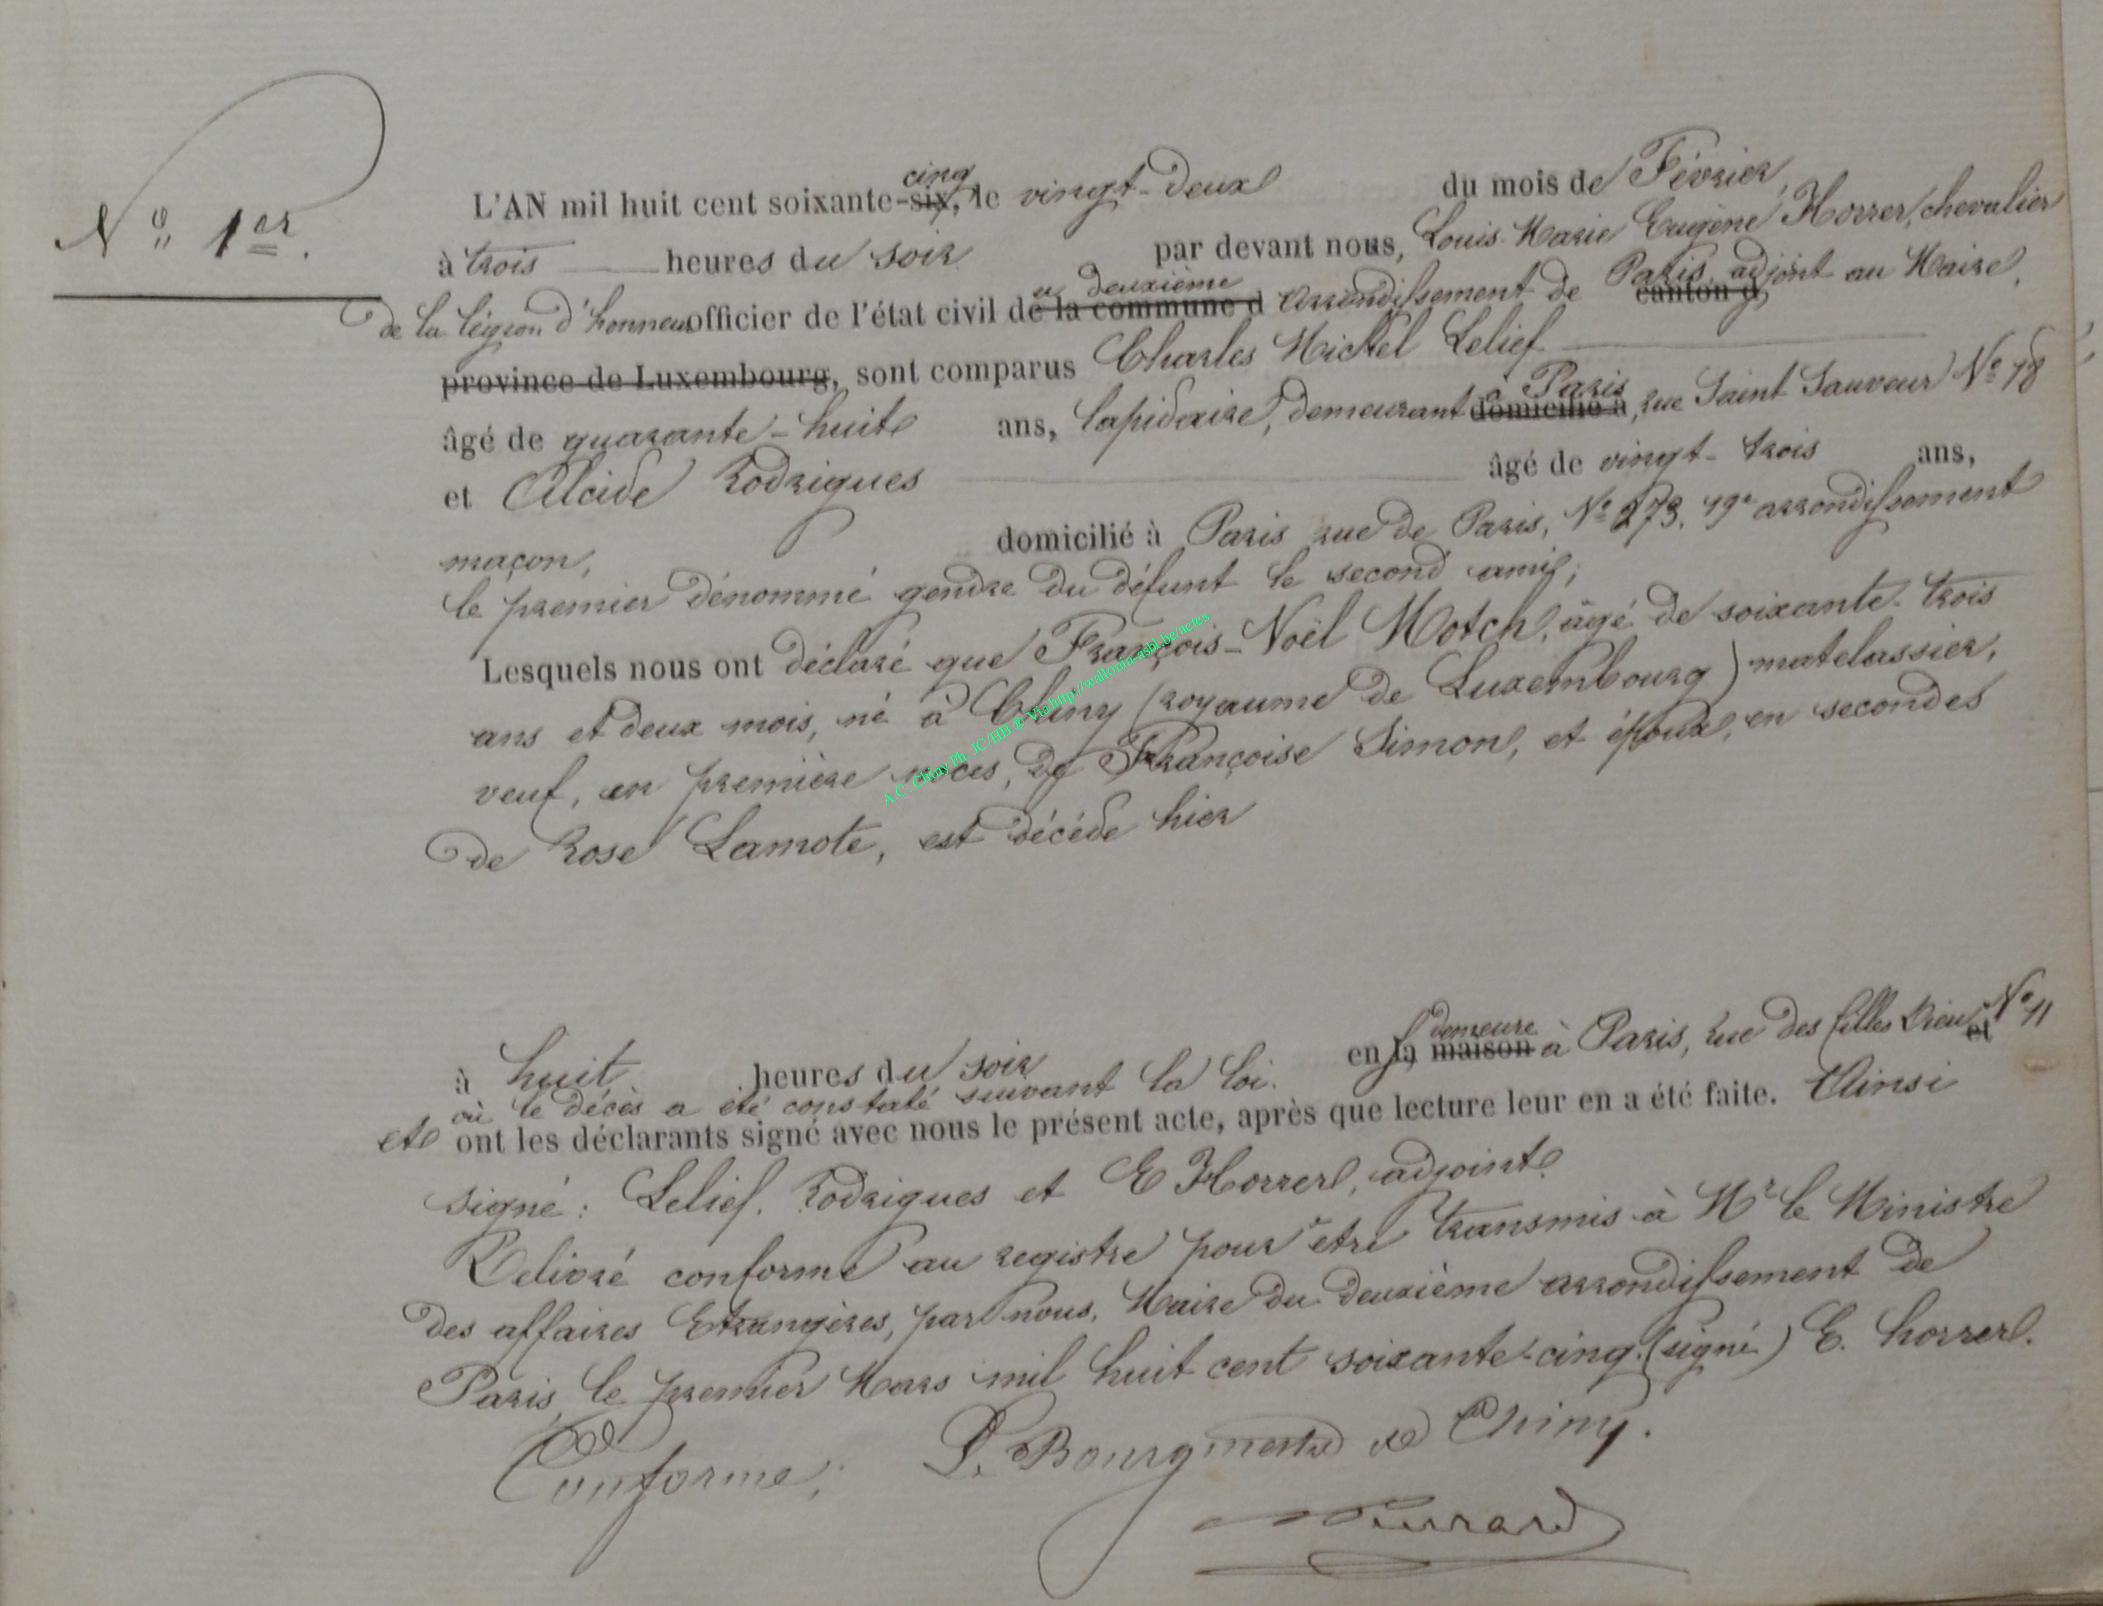 N° 1er.
L'AN mil huit cent soixante-six, cinq le vingt-deux du mois de Février,
à trois heures du soir par devant nous, Louis Marie Eugène Horrer, chevalier
de la légion d'honneur officier de l'état civil de la commune d u deuxième arrondissement de canton d Paris, adjoint au Maire,
province de Luxembourg, sont comparus Charles Michel Lelief
âgé de quarante-huit ans, lapidaire, demeurant domicilié à à Paris, rue Saint Sauveur N° 78
et Alcide Rodrigues âgé de vingt-trois ans,
maçon, domicilié à Paris rue de Paris, N° 273. 19e arrondissement
le premier dénommé gendre du défunt le second ami;
Lesquels nous ont déclaré que François-Noël Motch, âgé de soixante-trois
ans et deux mois, né à Chiny (royaume de Luxembourg) matelassier,
veuf, en première noces, de Françoise Simon, et époux, en secondes
de Rose Lamote, est décédé hier
à huit heures du soir en la maison sa demeure à Paris, rue des filles Dieu N° 11 et
où le décès a été constaté suivant la loi.
et ont les déclarants signé avec nous le présent acte, après que lecture leur en a été faite. Ainsi
signé: Lelief. Rodrigues et E Horrer, adjoint.
Délivré conforme au registre pour être transmis à Mr le Ministre
des affaires Etrangères, par nous, Maire du deuxième arrondissement de
Paris, le premier Mars mil huit cent soixante-cinq. (signé) E. horrer.
Conforme; L. Bourgmestre de Chiny.
A.C. Chiny Ph. JC/HB © Via http://wallonia-asbl.be/actes